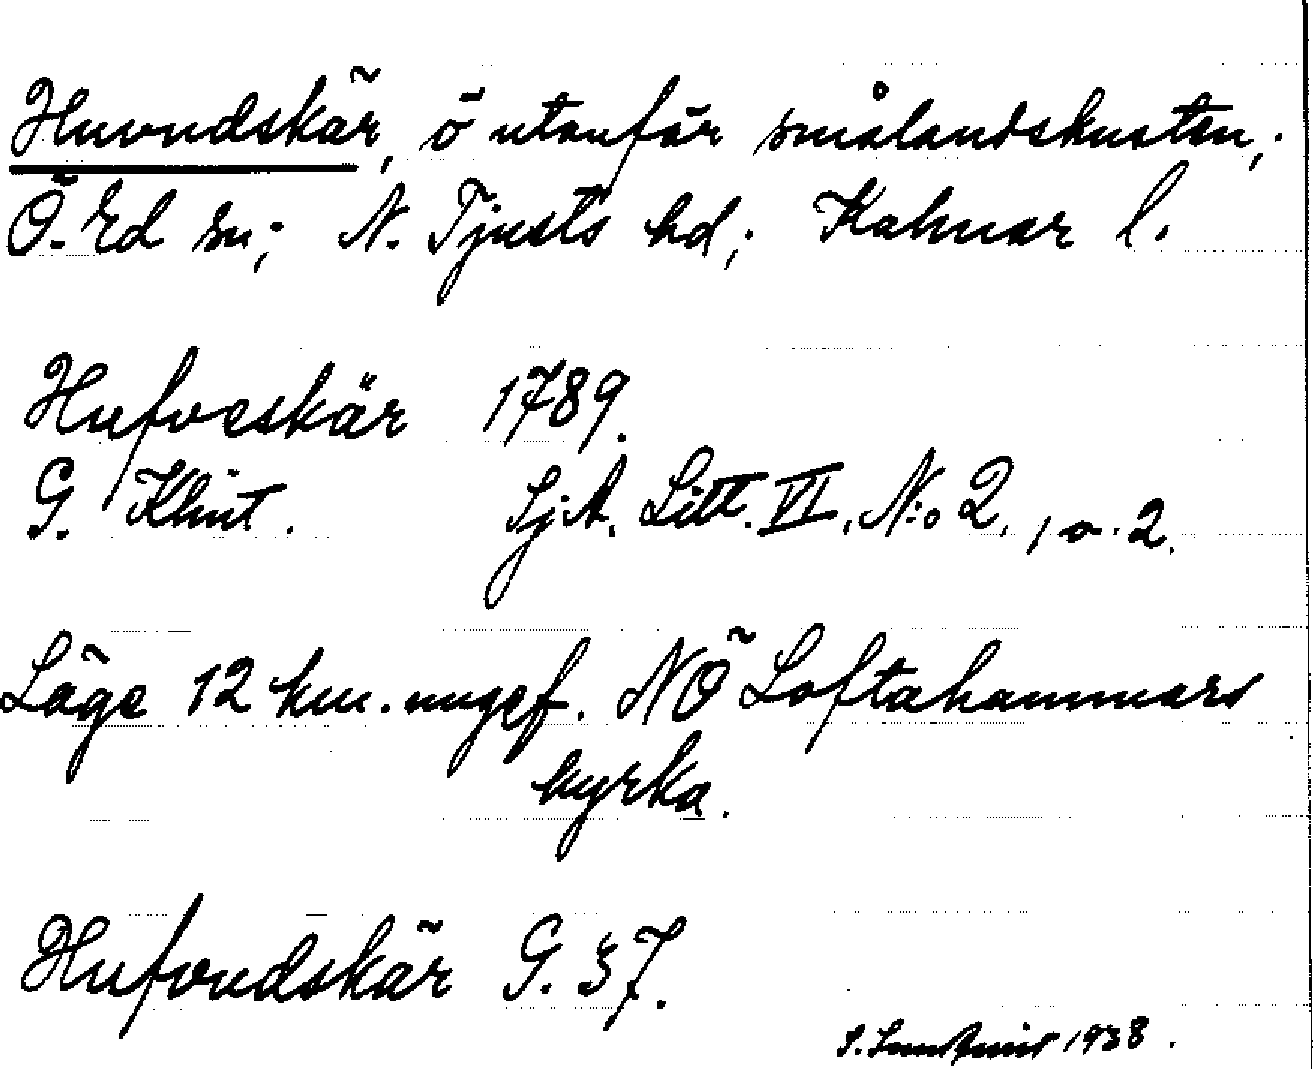 Huvudskär, ö utanför smålandskusten;
Ö. Ed sn; N. Tjusts hd; Kalmar l.
Hufveskär 1789.
G. Klint. SjA. Litt. VI. N:o 2. 1 o. 2.
Läge 12 km. ungef. NÖ Loftahammars
kyrka.
Hufvudskär G. 37.
1938.